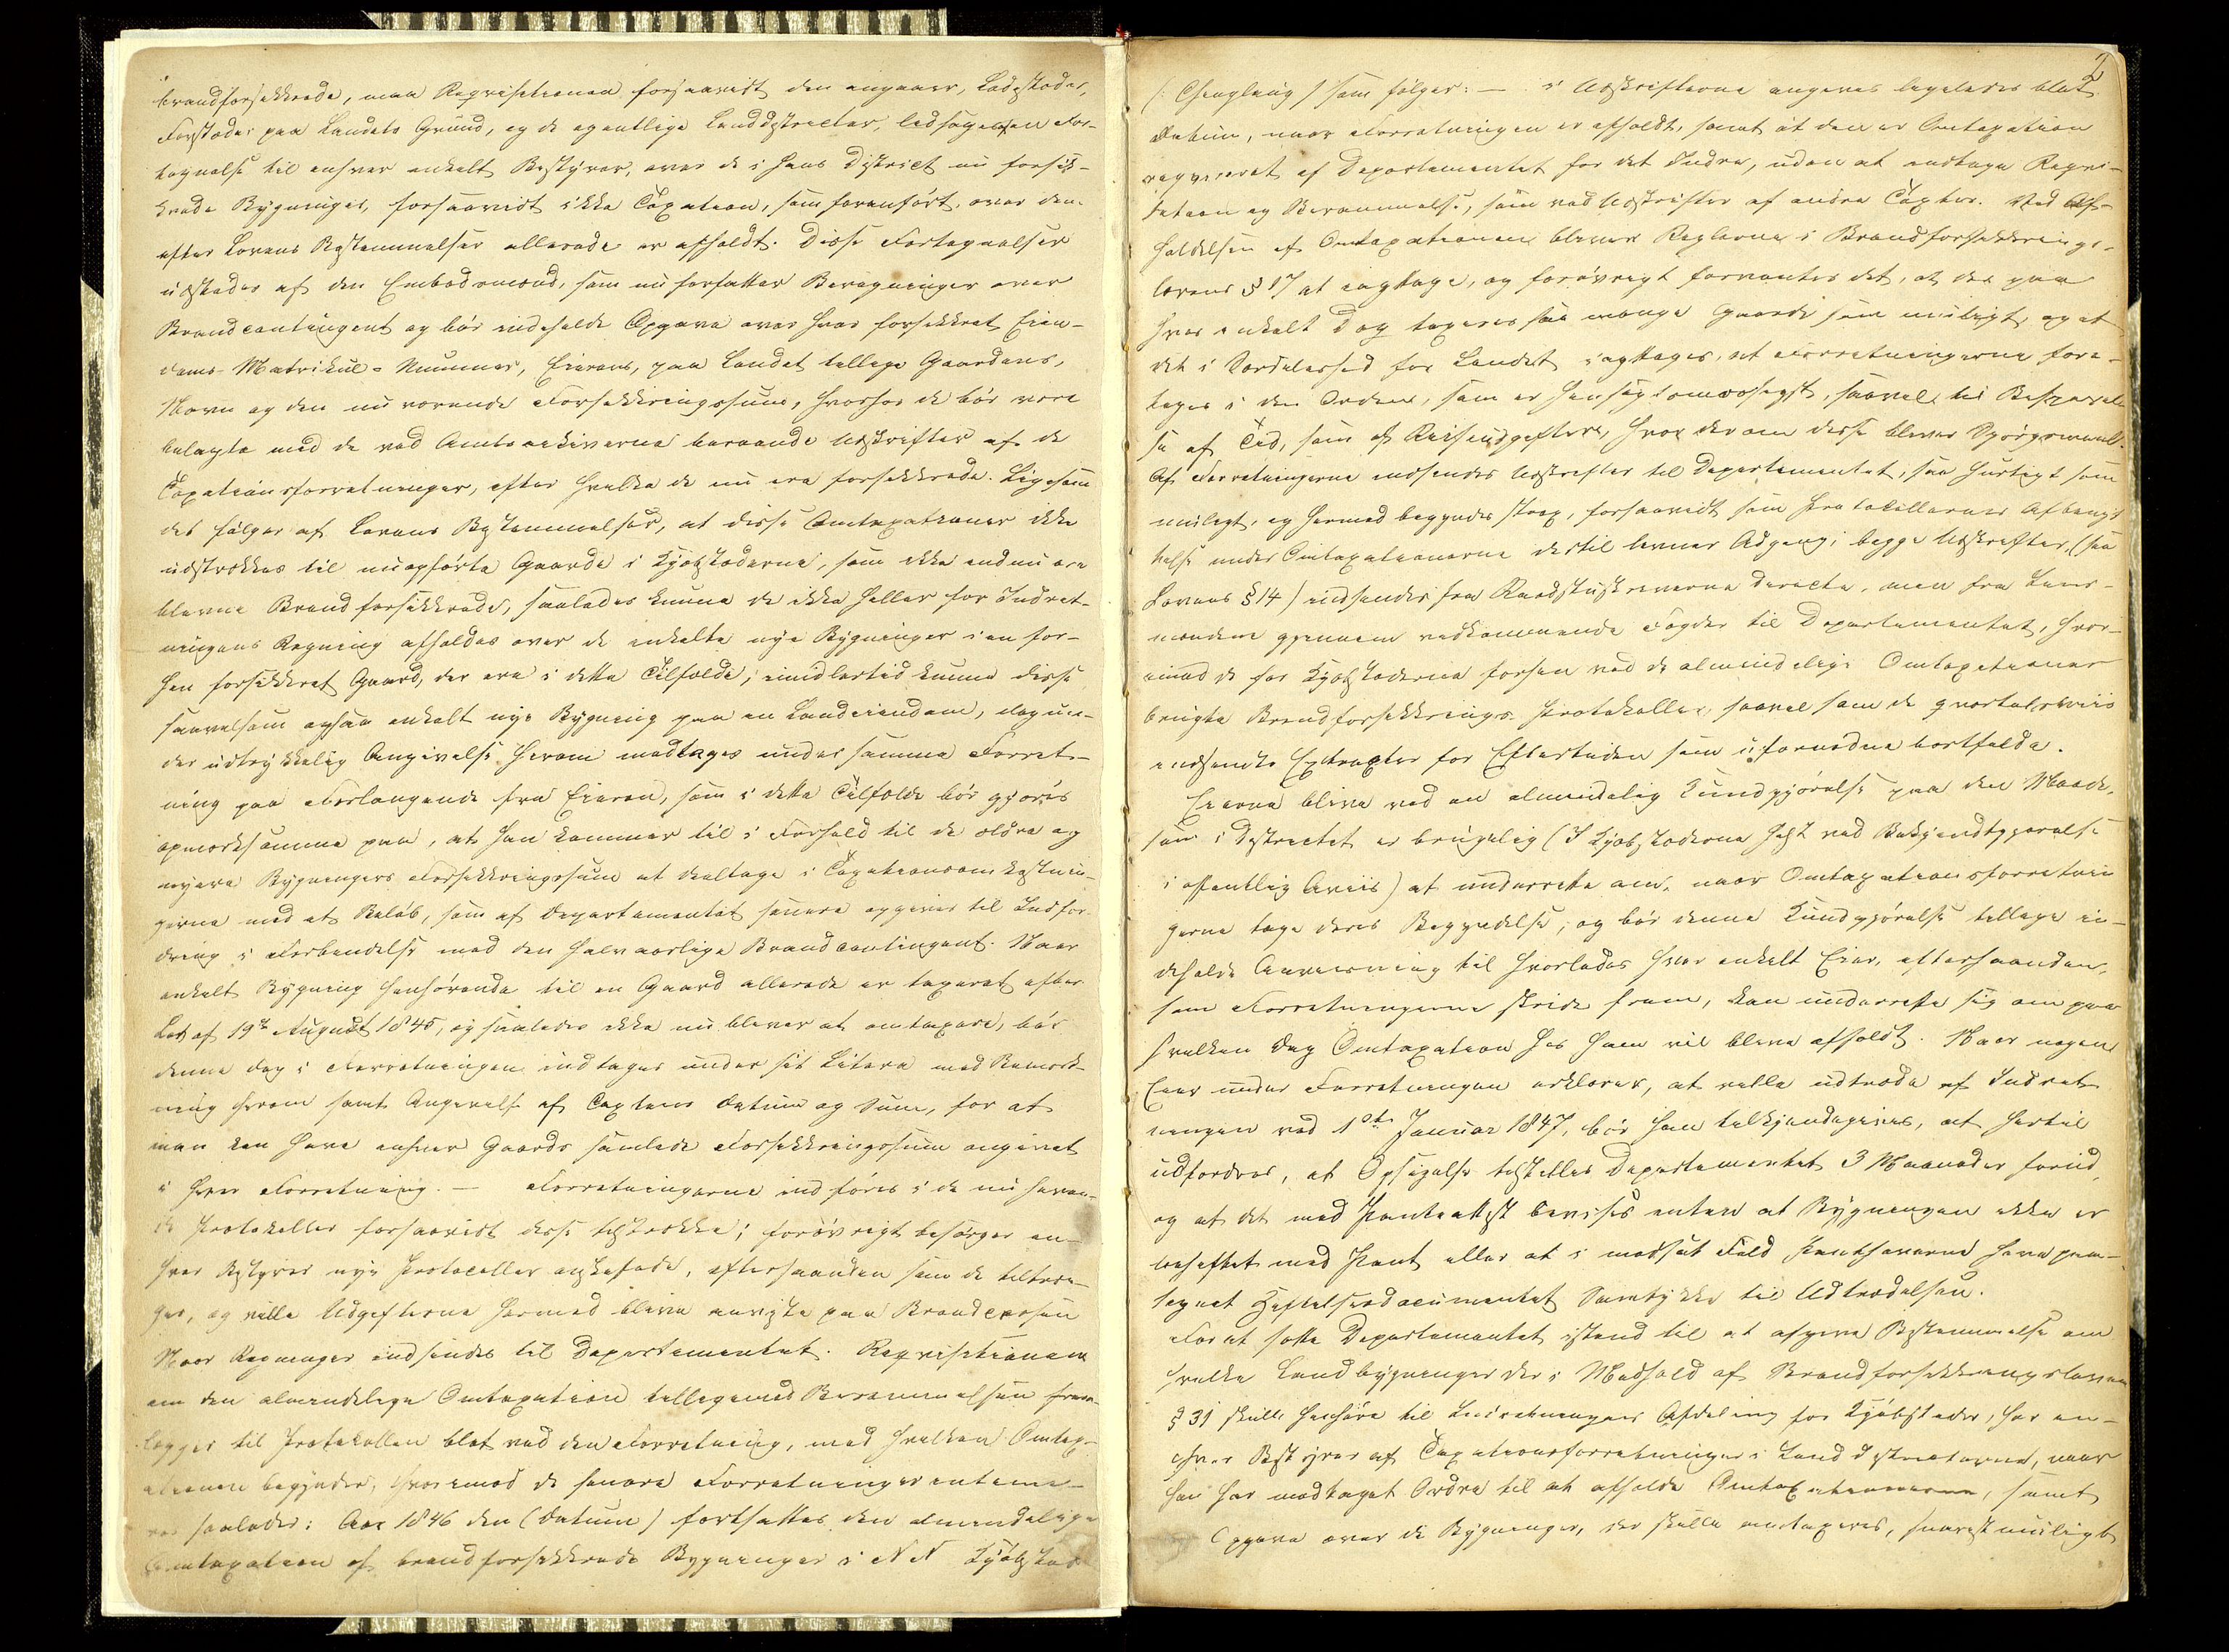 brandforsikkrede, maa Reqvisitionen forsaavidt den angaaer, Ladesteder,
Forstæder paa Landets Grund, og de egentlige Landdistricter, ledsages en For-
tegnelse til enhver enkelt Bestyrer, over de i hans District nu forsik-
krede Bygninger, forsaavidt ikke Taxation, som foranført, over dem
efter Lovens Bestemmelser allerede er afholdt. Disse Fortegnelser
udstedes af den Embedsmand, som nu forfatter Beregninger over
Brandcontingent og bør indeholde Opgave over hver forsikkret Eien-
doms Matrikul-Nummer, Eierens, paa Landet tillige Gaardens,
Navn og den nu værende Forsikkringssum, hvorhos de bør være
belagte med de ved Amtsarkiverne beroende Udskrifter af de
Taxationsforretninger, efter hvilke de nu ere forsikkrede. Ligesom
det følger af Lovens Bestemmelser, at disse Omtaxationer ikke
udstrækkes til nyopførte Gaarde i Kjøbstæderne, som ikke endnu ere
blevne Brandforsikkrede, saaledes kunne de ikke heller for Indret-
ningens Regning afholdes over de enkelte nye Bygninger i en for-
hen forsikkret Gaard, der ere i dette Tilfælde; imidlertid kunne disse
saavelsom ogsaa enkelt nye Bygning paa en Landeiendom, dog un-
der udtrykkelig Angivelse herom medtages under samme Forret-
ning paa Forlangende fra Eieren, som i dette Tilfælde bør gjøres
opmærksomme paa, at han kommer til i Forhold til de ældre og
nyere Bygningers Forsikkringssum at deeltage i Taxationsomkostnin-
gerne med et Beløb, som af Departementet senere opgives til Indfor-
dring i Forbindelse med den halvaarlige Brandcontingent. Naar
enkelt Bygning henhørende til en Gaard allerede er taxeret efter
Lov af 19de August 1845, og saaledes ikke nu bliver at omtaxere, bør
denne dog i Forretningen indtages under sit Litera med Bemærk-
ning herom samt Angivelse af Taxtens Datum og Sum, for at
man kan have enhver Gaards samlede Forsikkringssum angivet
i hver Forretning. — Forretningerne indføres i de nu haven-
de Protokoller forsaavidt disse tilstrække; forøvrigt besørger en-
hver Bestyrer nye Protocoller anskaffede, efterhaanden som de tiltræn-
ges, og ville Udgifterne hermed blive anviste paa Brandcassen
Naar Regninger indsendes til Departementet. Reqvisitionen
om den almindelige Omtaxation tilligemed Berammelsen frem-
lægges til Protokollen blot ved den Forretning, med hvilken Omtax-
ationen begynder, hvorimod de senere Forretninger entame-
res saaledes: Aar 1846 den (Datum) fortsattes den almindelige
Omtaxation af brandforsikkrede Bygninger i N N Kjøbstad
2
som følger: — i Udskrifterne angives ligeledes blot
Datum, naar Forretningen er afholdt, samt at den er Omtaxation
reqvireret af Departementet for det Indre, uden at indtage Reqvi-
sition og Berammelse, som ved Udskrifter af andre Taxter. Ved Af-
holdelsen af Omtaxationen bliver Reglerne i Brandforsikkrings-
lovens § 17 at iagttage, og forøvrigt forventes det, at der paa
hver enkelt Dag taxeres saa mange Gaarde som muligt, og at
det i Særdeleshed for Landet iagttages, at Forretningerne fore-
tages i den Orden, som er hensigtsmæssigst, saavel til Besparel-
se af Tid, som af Reiseudgifterne, hvor der om disse bliver Spørgsmaal.
Af Forretningerne indsendes Udskrifter til Departementet, saa hurtigt som
muligt, og hermed begyndes strax, forsaavidt som Protokollernes Afbenyt-
telse under Omtaxationerne dertil levner Adgang; begge Udskrifter, (see
Lovens § 14) indsendes fra Raadstuskriverne directe, men fra Lens-
mændene gjennem vedkommende Fogder til Departementet, hvor-
imod de for Kjøbstæderne forhen ved de almindelige Omtaxationer
brugte Brandforsikkrings Protokoller, saavel som de qvartalsviis
indsendte Extracter for Eftertiden som ufornødne bortfalde.
Eierne blive ved en almindelig Kundgjørelse paa den Maade,
som i Districtet er brugelig (I Kjøbstæderne helst ved Bekjendtgjørelse
i offentlig Aviis) at underrette om, naar Omtaxationsforretnin
gerne tage deres Begyndelse, og bør denne Kundgjørelse tillige in-
deholde Anviisning til hvorledes hver enkelt Eier, efterhaanden,
som Forretningerne skride frem, kan underrette sig om paa
hvilken Dag Omtaxation hos ham vil blive afholdt. Naar nogen
Eier under Forretningen erklærer, at ville udtræde af Indret-
ningen ved 1ste Januar 1847, bør han tilkjendegives, at hertil
udfordres, at Opsigelse tilstilles Departementet 3 Maaneder forud,
og at det med Panteattest bevises enten at Bygningen ikke er
behæftet med Pant eller at i modsat Fald Panthaverne have paa-
tegnet Hæftelsesdocumentet Samtykke til Udtrædelsen.
For at sætte Departementet istand til at afgive Bestemmelse om
hvilke Landbygninger der i Medhold af Brandforsikkringsloven
§ 31 skulle henhøre til Indretningens Afdeling for Kjøbstæder, har en-
hver Bestyrer af Taxationsforretninger i Landdistricterne, naar
han har modtaget Ordre til at afholde Omtaxationerne, samt
Opgave over de Bygninger, der skulle omtaxeres, snarest muligt